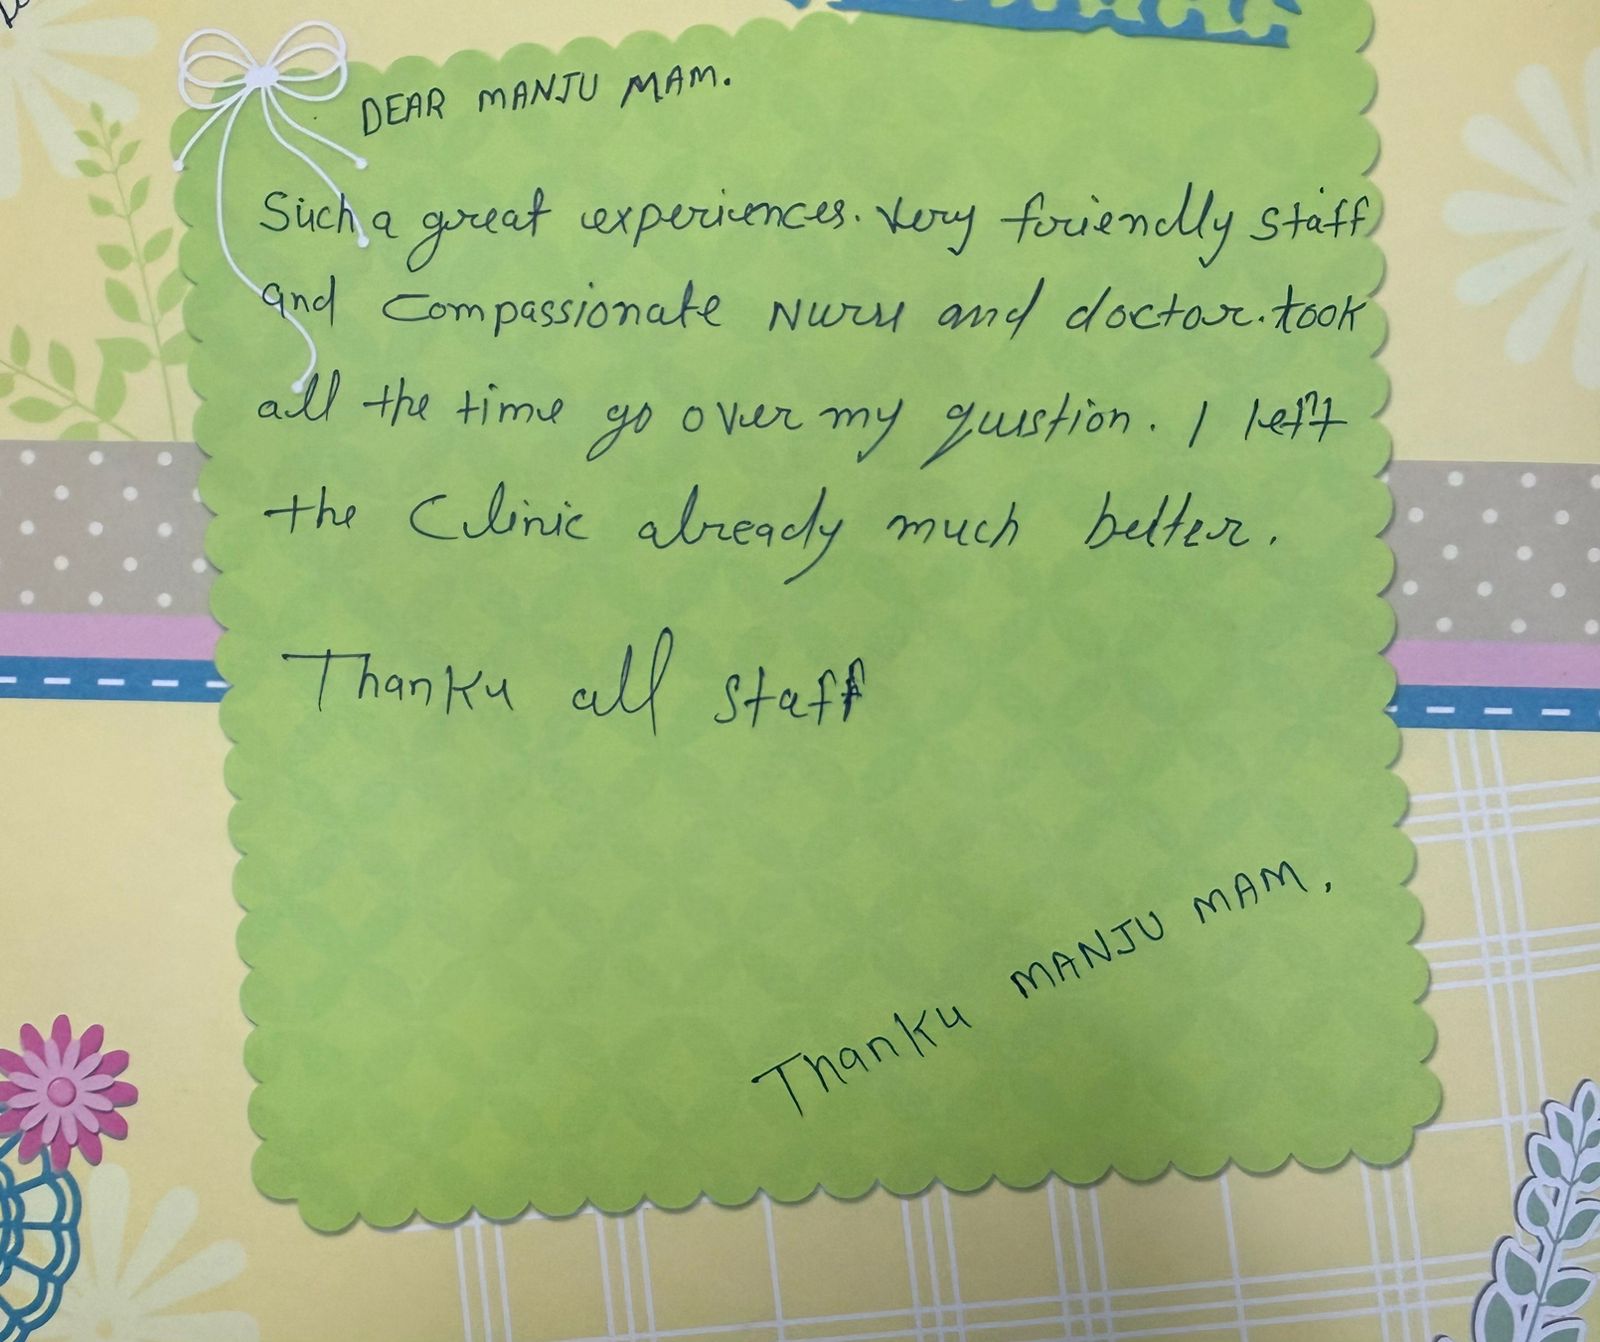 DEAR MANJU MAM.
Such a great experiences. Very friendly staff
and compassionate Nurse and doctor. took
all the time go over my question. I left
the Clinic already much better.
Thanku all staff
Thanku MANJU MAM.